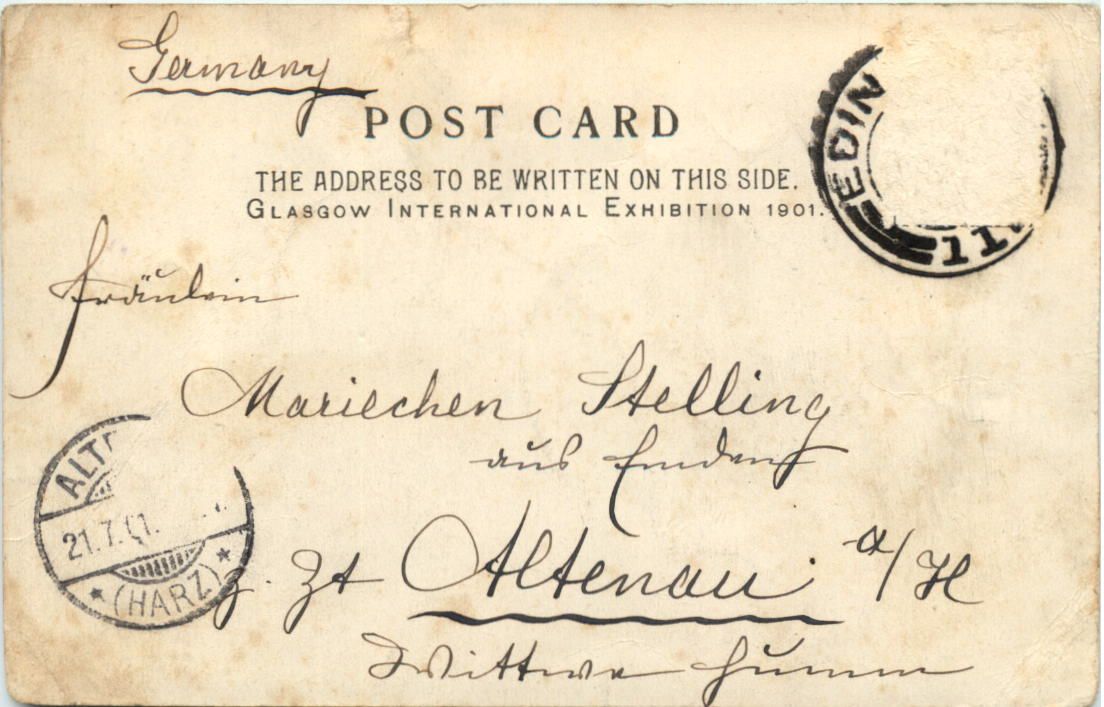 Germany
POST CARD
THE ADDRESS TO BE WRITTEN ON THIS SIDE.
GLASGOW INTERNATIONAL EXHIBITION 1901.
EDIN
11
Fräulein
Mariechen Stelling
aus Emden
ALT
21.7.01.
(HARZ)
z. Zt Altenau a/H
Wittwe Humm